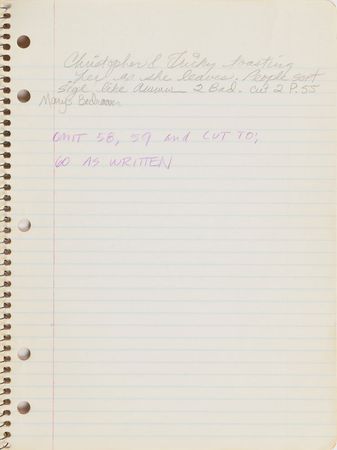 Christopher & Tricky toasting
her as she leaves. People sort
sigh like Awww 2 Bad. cut 2 P. 55
Mary's Bedroom
OMIT 58, 59 and CUT TO;
60 AS WRITTEN